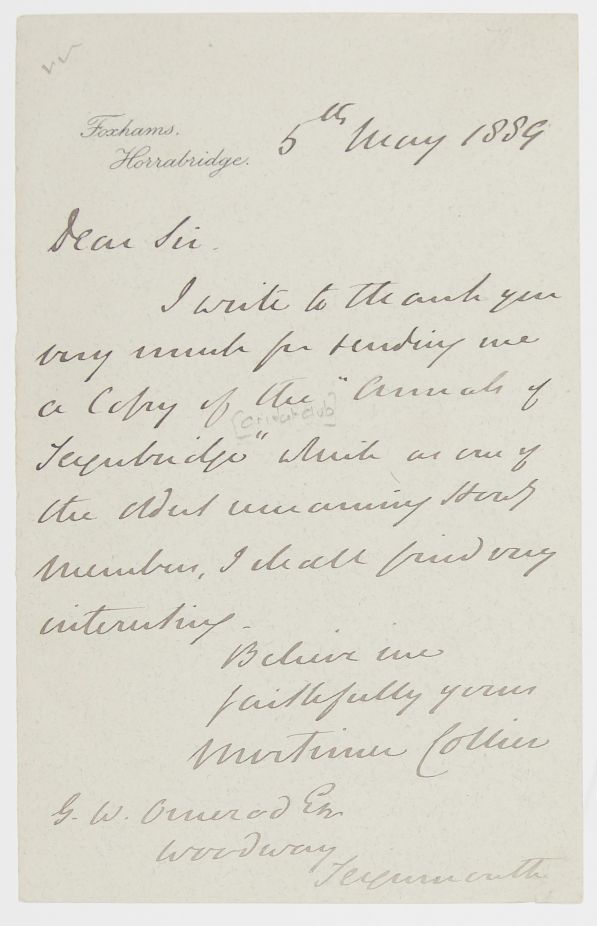 Foxhams,
Horrabridge.
5th May 1889
Dear Sir.
I write to thank you
very much for sending me
a Copy of the "Annals of
[Cricket club]
Teignbridge" which as one of
the oldest remaining Hony
Members, I shall find very
interesting.
Believe me
faithfully yours
Mortimer Collier
G. W. Ormerod Esq
Woodway
Teignmouth